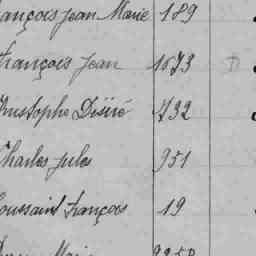 ançois Jean Marie 189
rançois Jean 1073
hristophe Désiré 432
Charles Jules 951
oussaint françois 19